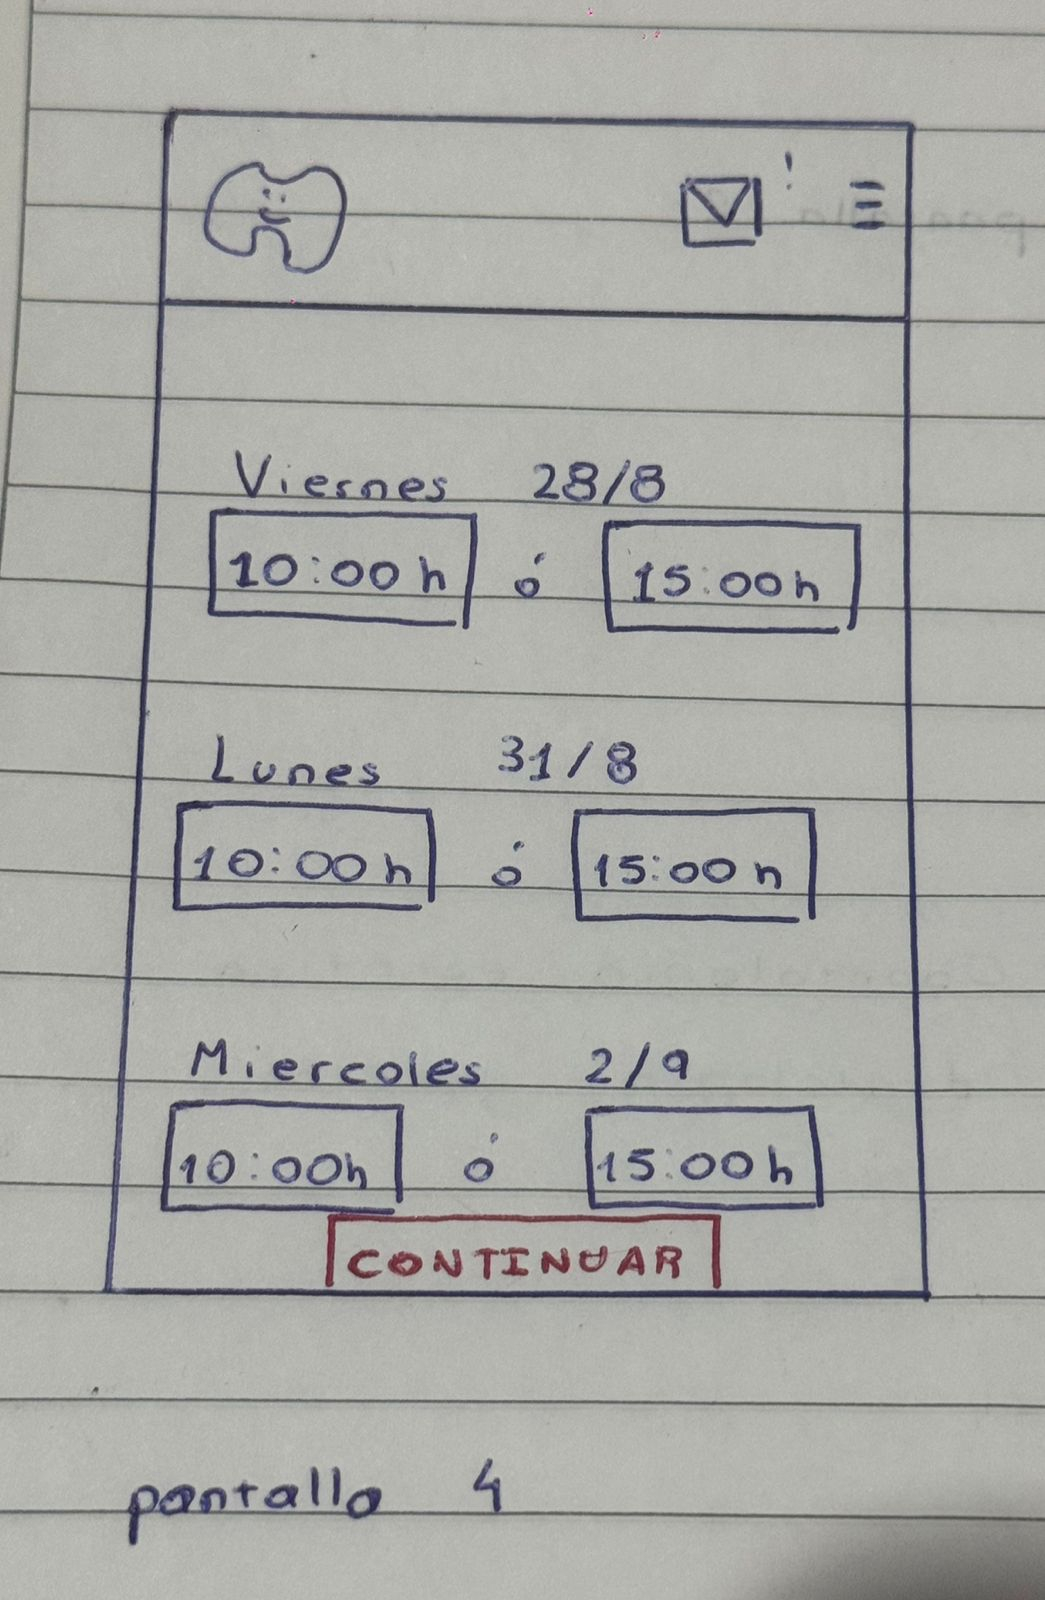 !
Viernes 28/8
10:00 h ó 15:00 h
Lunes 31/8
10:00 h ó 15:00 h
Miercoles 2/9
10:00h ó 15:00 h
CONTINUAR
pantalla 4